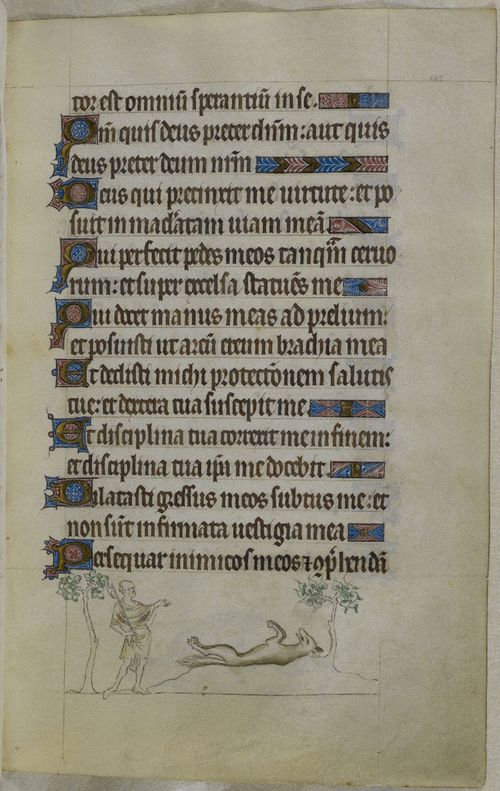 tor est omniū sperantiū in se.
Qm̄ quis deus preter dūm: aut quis
deus preter deum nr̄m
Deus qui precinxit me uirtute: et po
suit inmaculatam uiam meā
Qui perfecit pedes meos tanqm̄ ceruo
rum: et super excelsa statuēs me
Qui docet manus meas ad prelium:
et posuisti ut arcū ereum brachia mea
Et dedisti michi protectōnem salutis
tue: et dextera tua suscepit me
Et disciplina tua correxit me in finem:
et disciplina tua ip̄a me docebit
Dilatasti gressus meos subtus me: et
non sūt infirmata uestigia mea
Persequar inimicos meos ⁊ ꝯp̄hendā